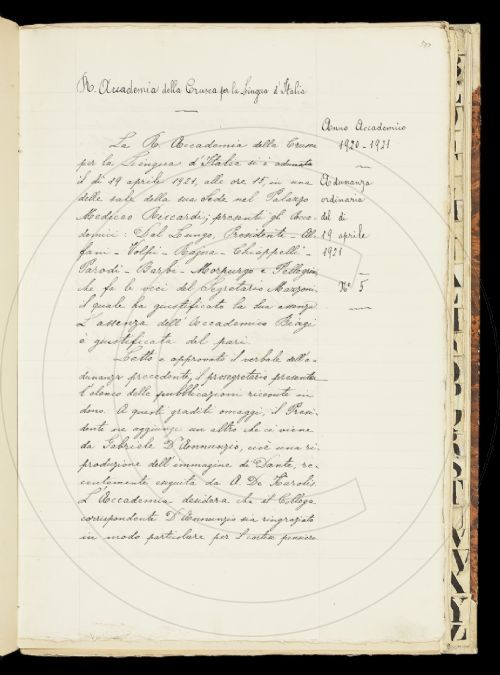 R. Accademia della Crusca per la Lingua d'Italia
Anno Accademico
1920-1921
Adunanza
ordinaria
del di
19 aprile
1921
N.° 5
La R. Accademia della Crusca
per la Lingua d'Italia si è adunata
il dì 19 aprile 1921, alle ore 15, in una
delle sale della sua Sede nel Palazzo
Mediceo Riccardi; presenti gli Acca-
demici: Del Lungo, Presidente -
fani - Volpi - Rajna - Chiappelli -
Parodi - Barbi - Morpurgo e Pellegrini,
che fa le veci del Segretario Mazzoni,
il quale ha giustificato la sua assenza.
L'assenza dell'Accademico Biagi
è giustificata del pari.
Letto e approvato il verbale dell'a-
dunanza precedente, il prosegretario presenta
l'elenco delle pubblicazioni ricevute in
dono. A questi graditi omaggi, il Presi-
dente ne aggiunge un altro che ci viene
da Gabriele D'Annunzio, cioè una ri-
produzione dell'immagine di Dante, re-
centemente eseguita da A. De Karolis.
L'Accademia desidera che il Collega
corrispondente D'Annunzio sia ringraziato
in modo particolare per il cortese pensiero